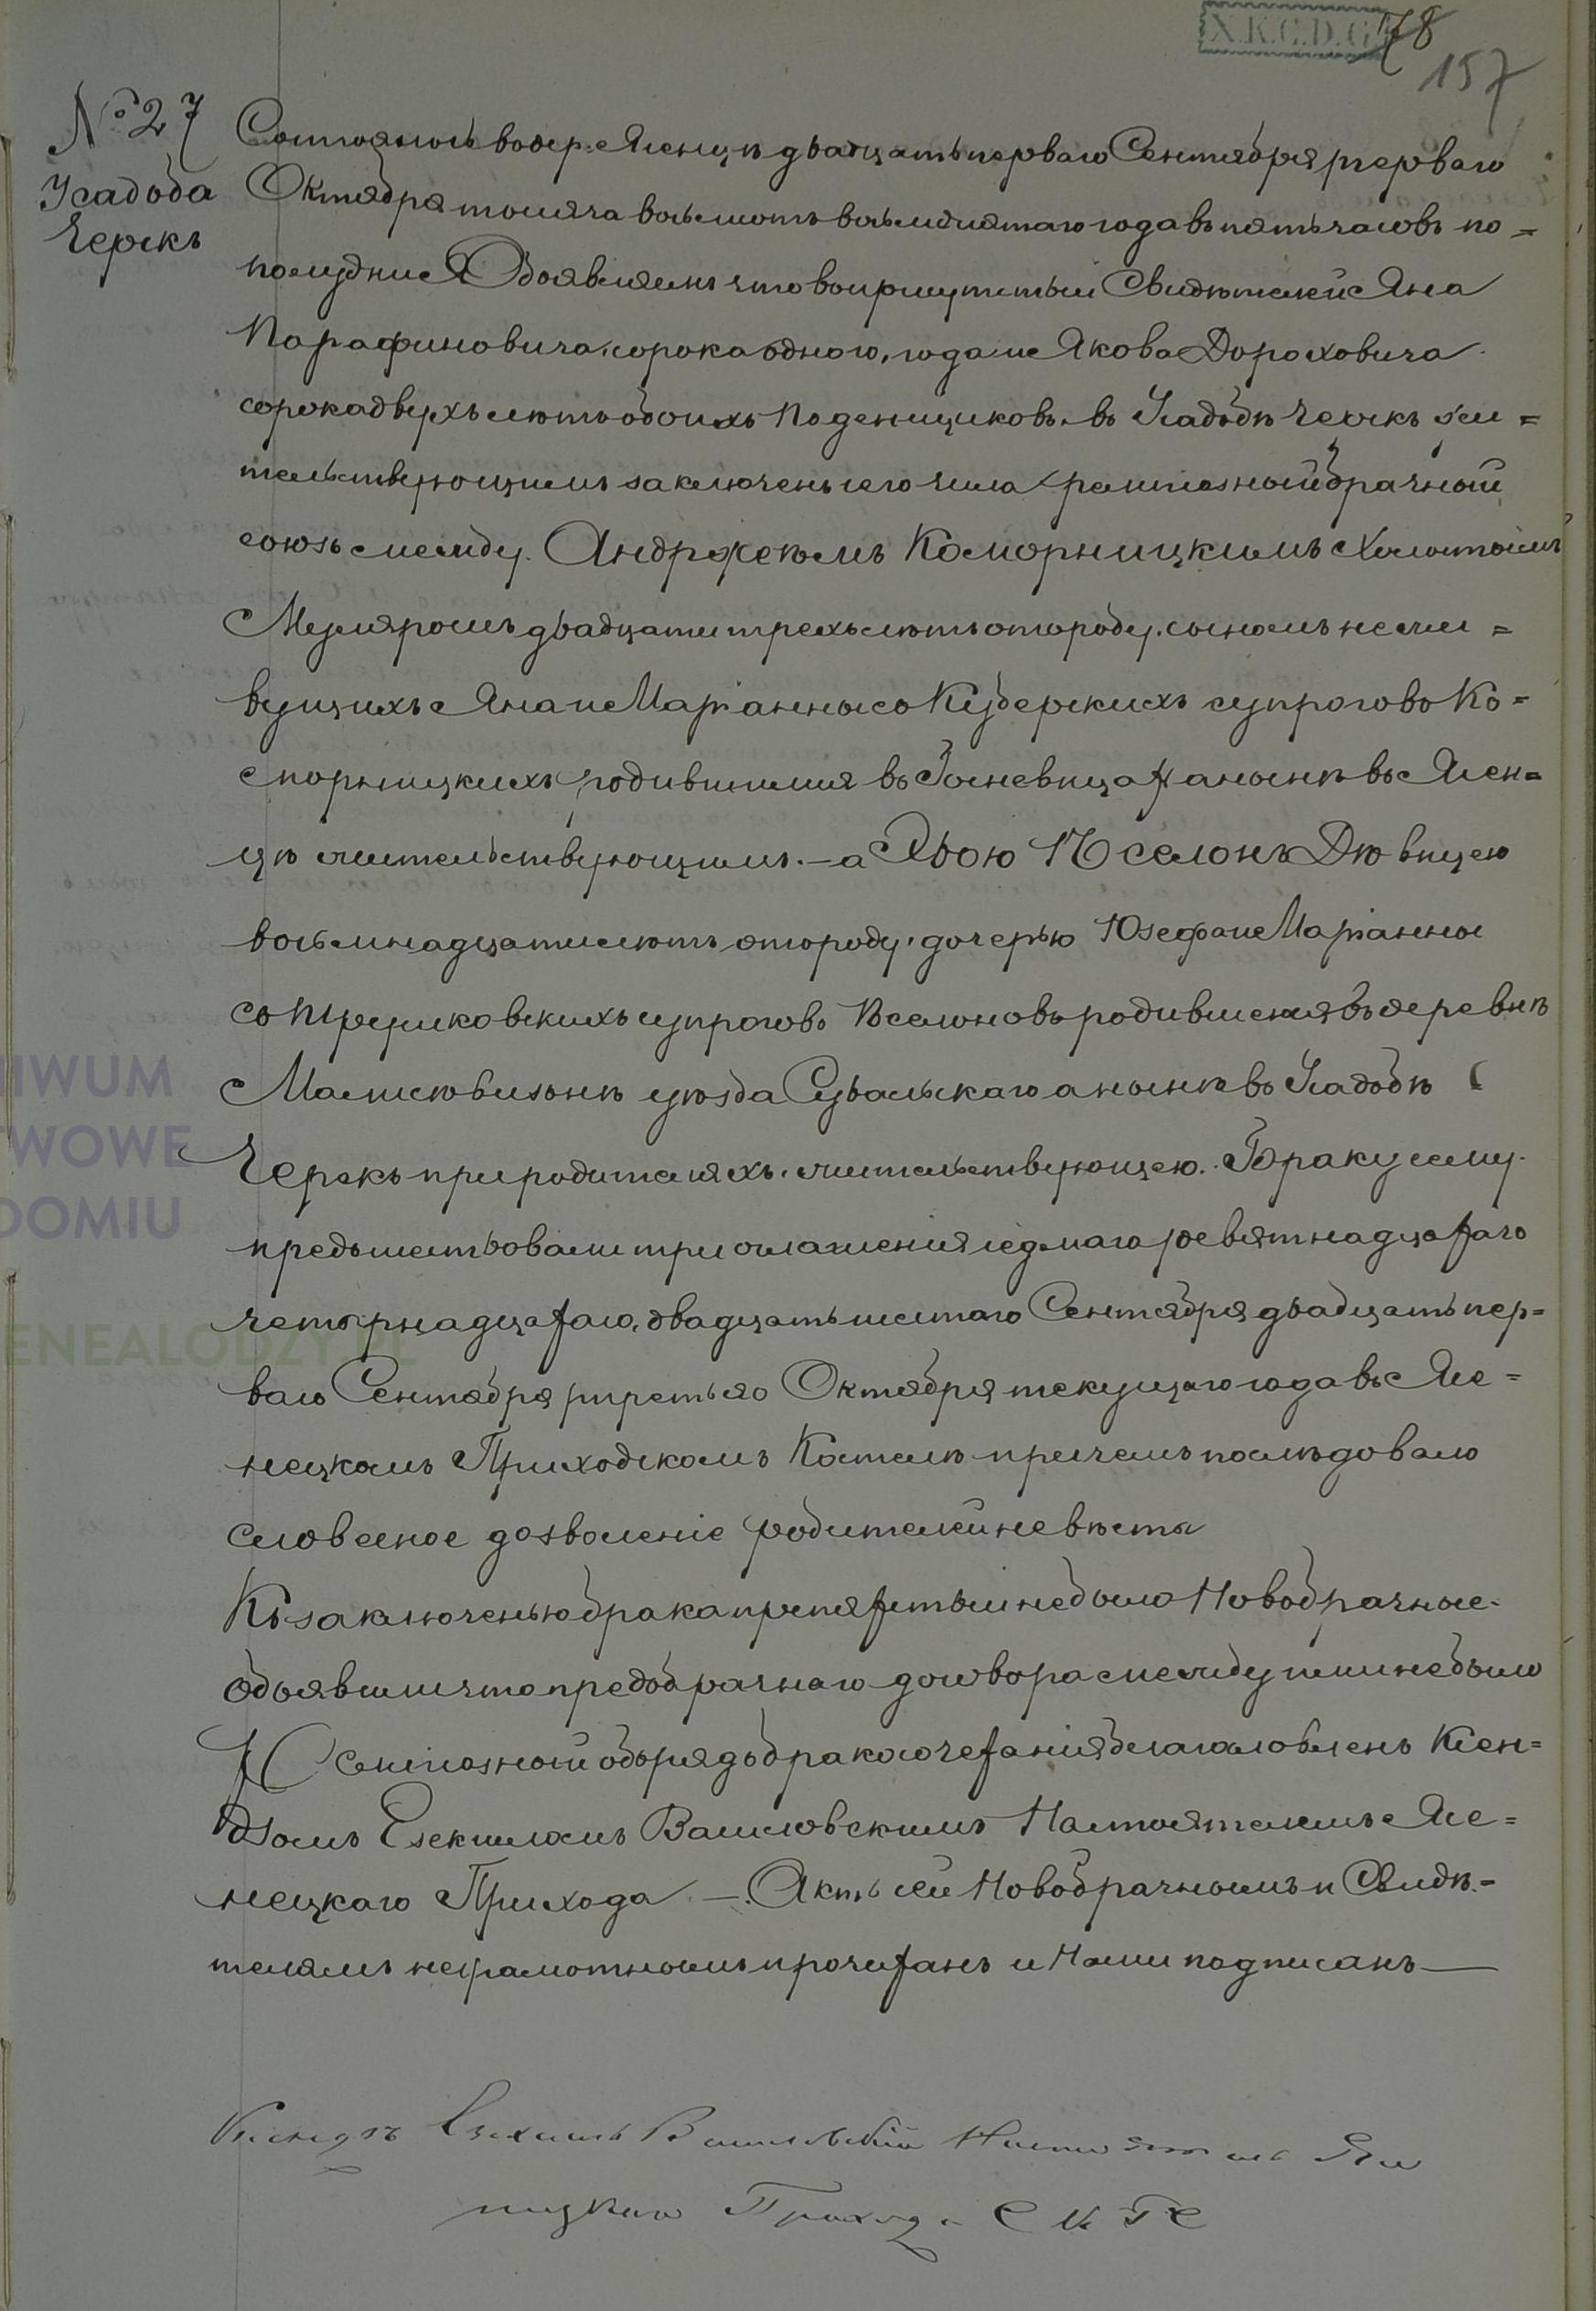 X.K.G.D.G. 78
157
№ 27
Усадьба
Черскъ
Состоялось въ дер. Ясенцѣ двадцать перваго Сентября / перваго
Октября тысяча восемьсотъ восьмидесятаго года въ пять часовъ по=
полудни Объявляемъ что въ присутствіи Свидѣтелей Яна
Парафиновича, сорока одного, года и Якова Дороховича
сорока двухъ лѣтъ обоихъ поденщиковъ въ Усадьбѣ Черскъ жи=
тельствующихъ заключенъ сего числа религіозный брачный
союзъ между Анджеемъ Коморницкимъ Холостымъ
Муляромъ двадцати трехъ лѣтъ отъ роду, сыномъ нежи=
вущихъ Яна и Маріанны съ Куберскихъ супруговъ Ко=
морницкихъ, родившимся въ а нынѣ въ Ясен=
цѣ жительствующимъ. — а Евою Кселонъ Дѣвицею
восьмнадцати лѣтъ отъ роду, дочерью Юзефа и Маріанны
съ супруговъ Кселоновъ родившеюся въ деревнѣ
уѣзда Сувалскаго а нынѣ въ Усадьбѣ
Черскъ при родителяхъ жительствующею. Браку сему
предшествовали три оглашенія седмаго / девятнадцатаго
четырнадцатаго, двадцать шестаго Сентября двадцать пер=
ваго Сентября / третьяго Октября текущаго года въ Ясе=
нецкомъ Приходскомъ Костелѣ при чемъ послѣдовало
словесное дозволеніе родителей невѣсты
Къ заключенью брака препятствій небыло Новобрачные
объявили что предбрачнаго договора между ими небыло
обрядъ бракосочетанія благословленъ Ксен=
дзомъ Езекіилемъ Настоятелемъ Ясе=
нецкаго Прихода. — Актъ сей Новобрачнымъ и Свидѣ=
телямъ неграмотнымъ прочитанъ и Нами подписанъ —
Ксендзъ Настоятель Ясе
нецкаго Прихода С К Г С
IWUM
WOWE
DOMIU
ENEALODZY.PL